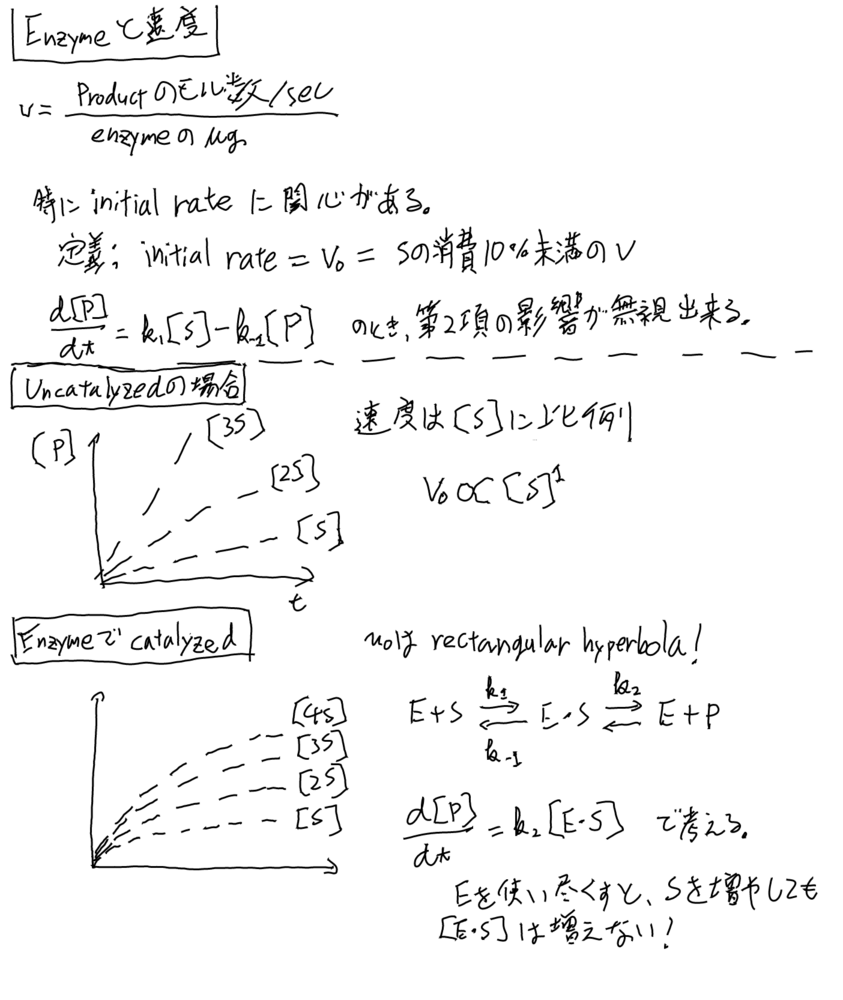 Enzymeと速度
v = Productのモル数/sec
enzymeの μg
特に initial rate に関心がある。
定義; initial rate = V₀ = Sの消費10%未満のV
d[P]/dt = k₁[S]-k₋₁[P] のとき、第2項の影響が無視出来る。
Uncatalyzedの場合
速度は[S]に比例
[P]
[3S]
[2S]
[S]
t
V₀ ∝ [S]¹
Enzymeで catalyzed
v₀は rectangular hyperbola!
[4S]
[3S]
[2S]
[S]
k₁ k₂
E+S ⇄ E・S ⇄ E+P
k₋₁
d[P]/dt = k₂[E・S] で考える。
Eを使い尽くすと、Sを増やしても
[E・S]は増えない!